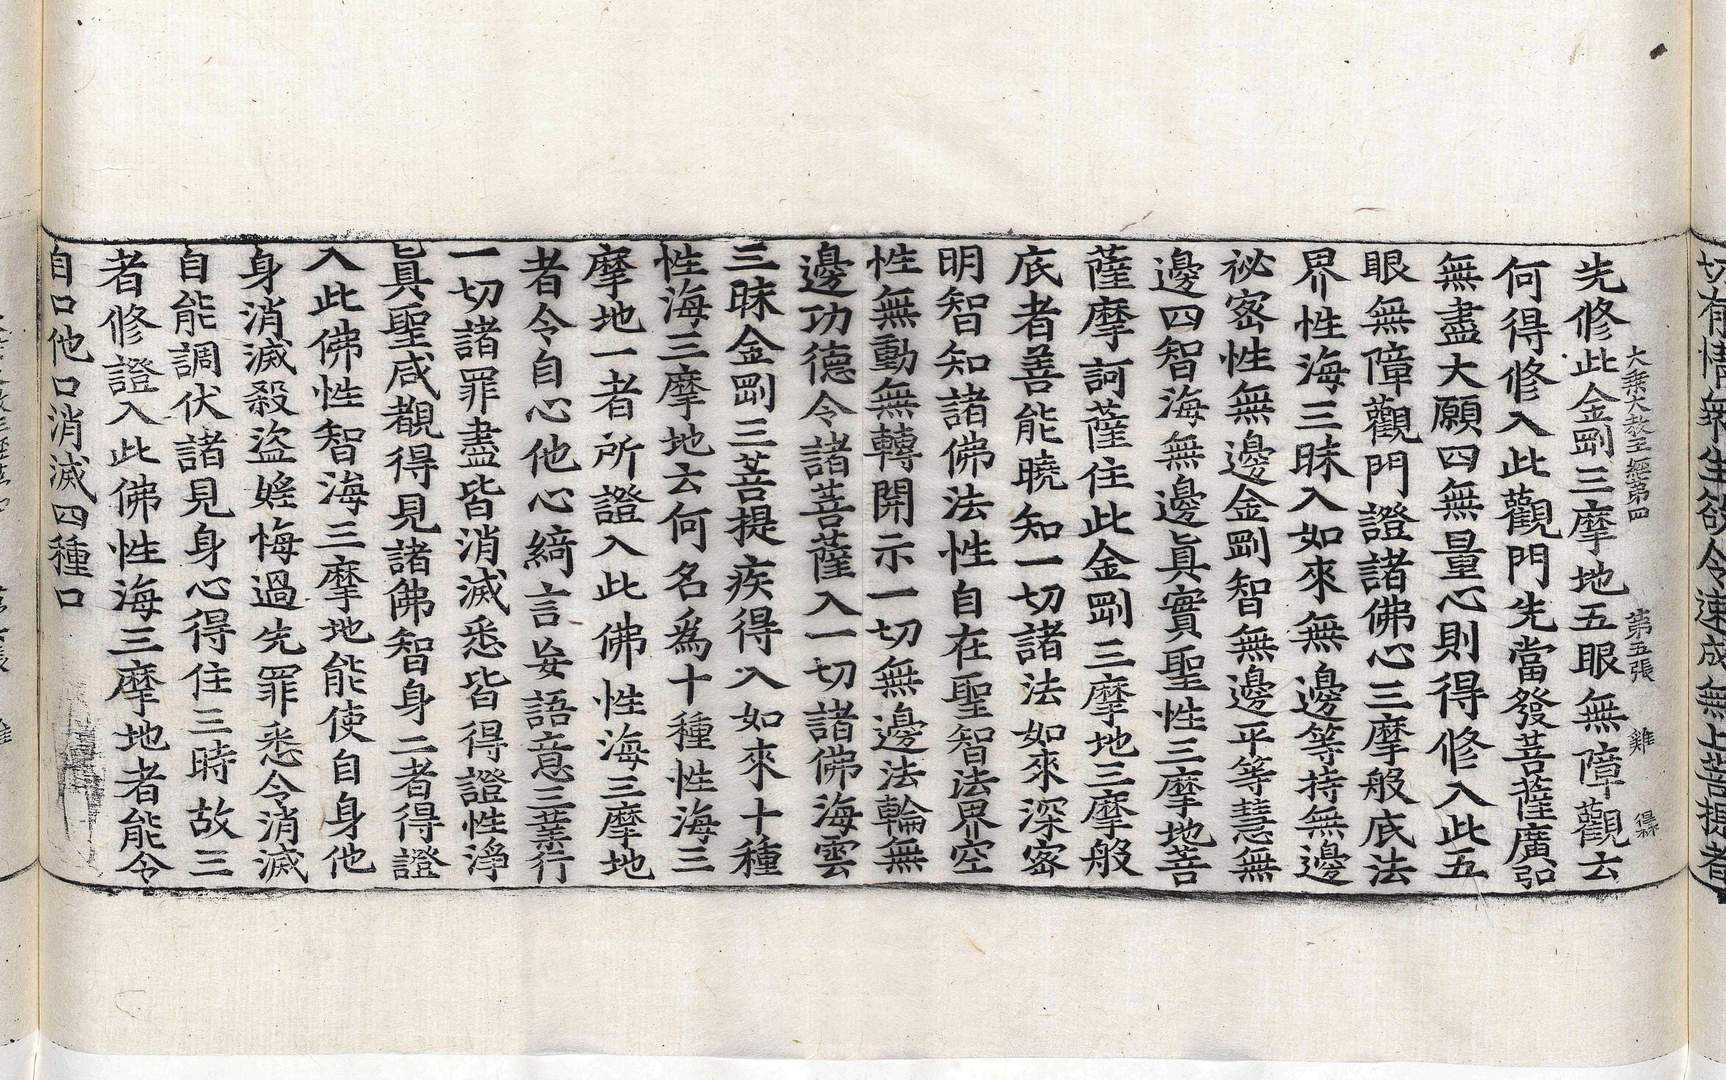 切有情衆生欲令速成無上菩提者
大乘大教王經第四 第五張 雞
先修此金剛三摩地五眼無障觀云
何得修入此觀門先當發菩薩廣弘
無盡大願四無量心則得修入此五
眼無障觀門證諸佛心三摩般底法
界性海三昧入如來無邊等持無邊
祕密性無邊金剛智無邊平等慧無
邊四智海無邊眞實聖性三摩地菩
薩摩訶薩住此金剛三摩地三摩般
底者善能曉知一切諸法如來深密
明智知諸佛法性自在聖智法界空
性無動無轉開示一切無邊法輪無
邊功德令諸菩薩入一切諸佛海雲
三昧金剛三菩提疾得入如來十種
性海三摩地云何名爲十種性海三
摩地一者所證入此佛性海三摩地
者令自心他心綺言妄語意三業行
一切諸罪盡皆消滅悉皆得證性淨
眞聖咸覩得見諸佛智身二者得證
入此佛性智海三摩地能使自身他
身消滅殺盜婬悔過先罪悉令消滅
自能調伏諸見身心得住三時故三
者修證入此佛性海三摩地者能令
自口他口消滅四種口